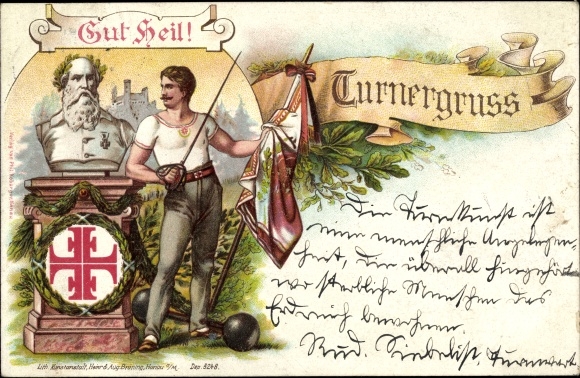 Gut Heil!
Turnergruss
Die Turnkunst ist
eine menschliche Angelegen-
heit, die überall hingehört
wo sterbliche Menschen das
Erdreich bewohnen.
Rud. Siebelist, Turnwart
Lith. Kunstanstalt, Heinr. & Aug. Brüning, Hanau a/M. Des. 8248.